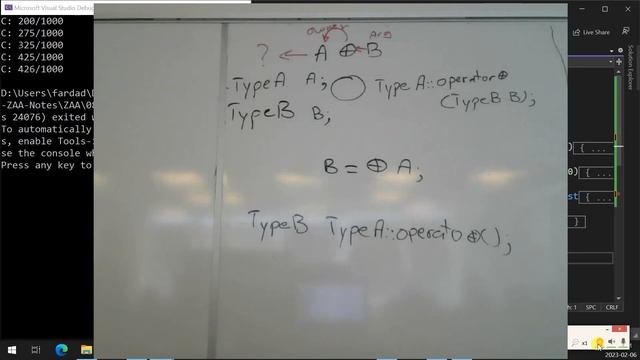 Microsoft Visual Studio Debug
C: 200/1000
C: 275/1000
C: 325/1000
C: 425/1000
C: 426/1000
D:\Users\fardad\D
-ZAA-Notes\ZAA\08
s 24076) exited w
To automatically
s, enable Tools-
se the console wh
Press any key to
owner
Arg
? ← A ⊕ B
TypeA A; TypeA::operator⊕
TypeB B; (TypeB B);
B = ⊕ A;
TypeB TypeA::operator⊕();
Solution Explorer
) { ... }
0) { ... }
st { ... }
: 1 SPC CRLF
x1
2023-02-06